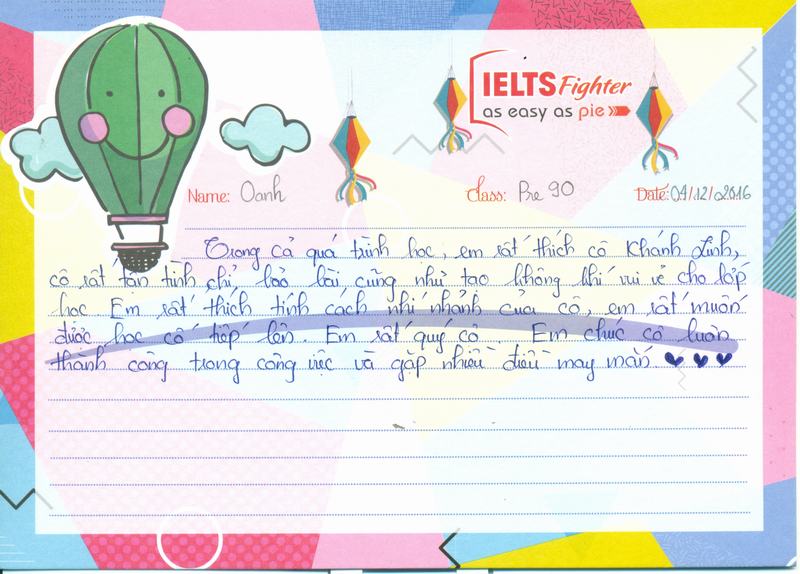 IELTS Fighter
as easy as pie
Name: Oanh Class: Pre 90 Date: 04/12/2016
Trong cả quá trình học, em rất thích cô Khánh Linh,
cô rất tận tình chỉ, bảo bài, cũng như tạo không khí vui vẻ cho lớp
học. Em rất thích tính cách nhí nhảnh của cô, em rất muốn
được học cô tiếp lên. Em rất quý cô. Em chúc cô luôn
thành công trong công việc và gặp nhiều điều may mắn. ♥ ♥ ♥